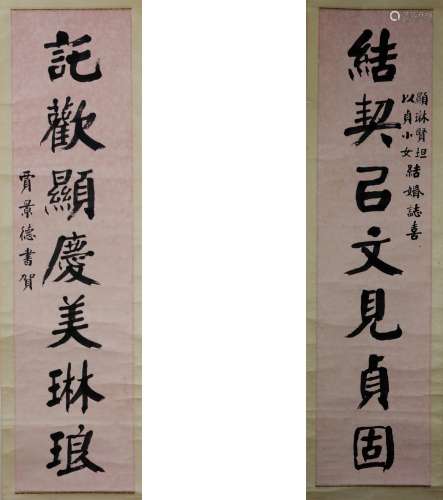 顯琳賢坦
以貞小女
結婚誌喜
結契㠯文見貞固
託歡顯慶美琳琅
賈景德書賀